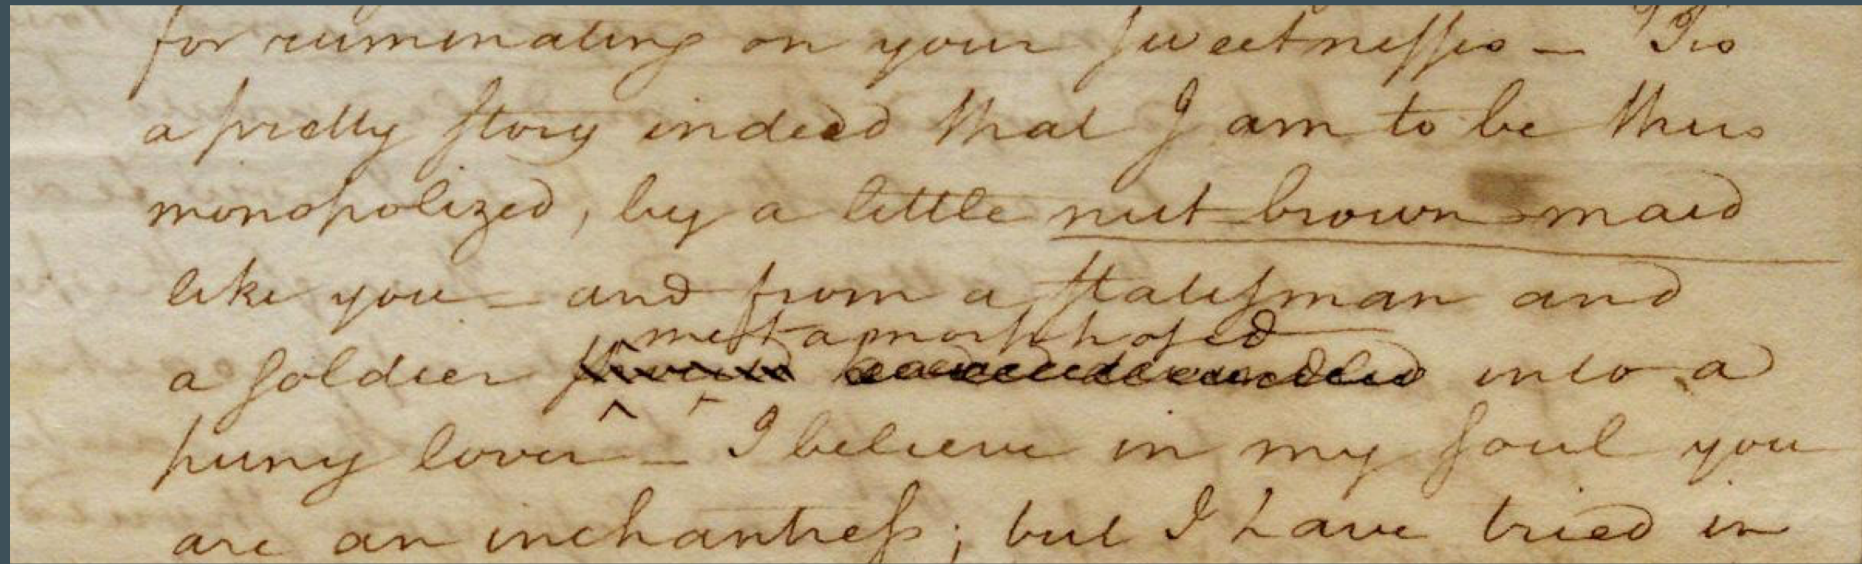 for ruminating on your sweetnesses — 'Tis
a pretty story indeed that I am to be thus
monopolized, by a little nut brown maid
like you — and from a statesman and
metamorphosed
a soldier into a
puny lover — I believe in my soul you
are an inchantress; but I have tried in